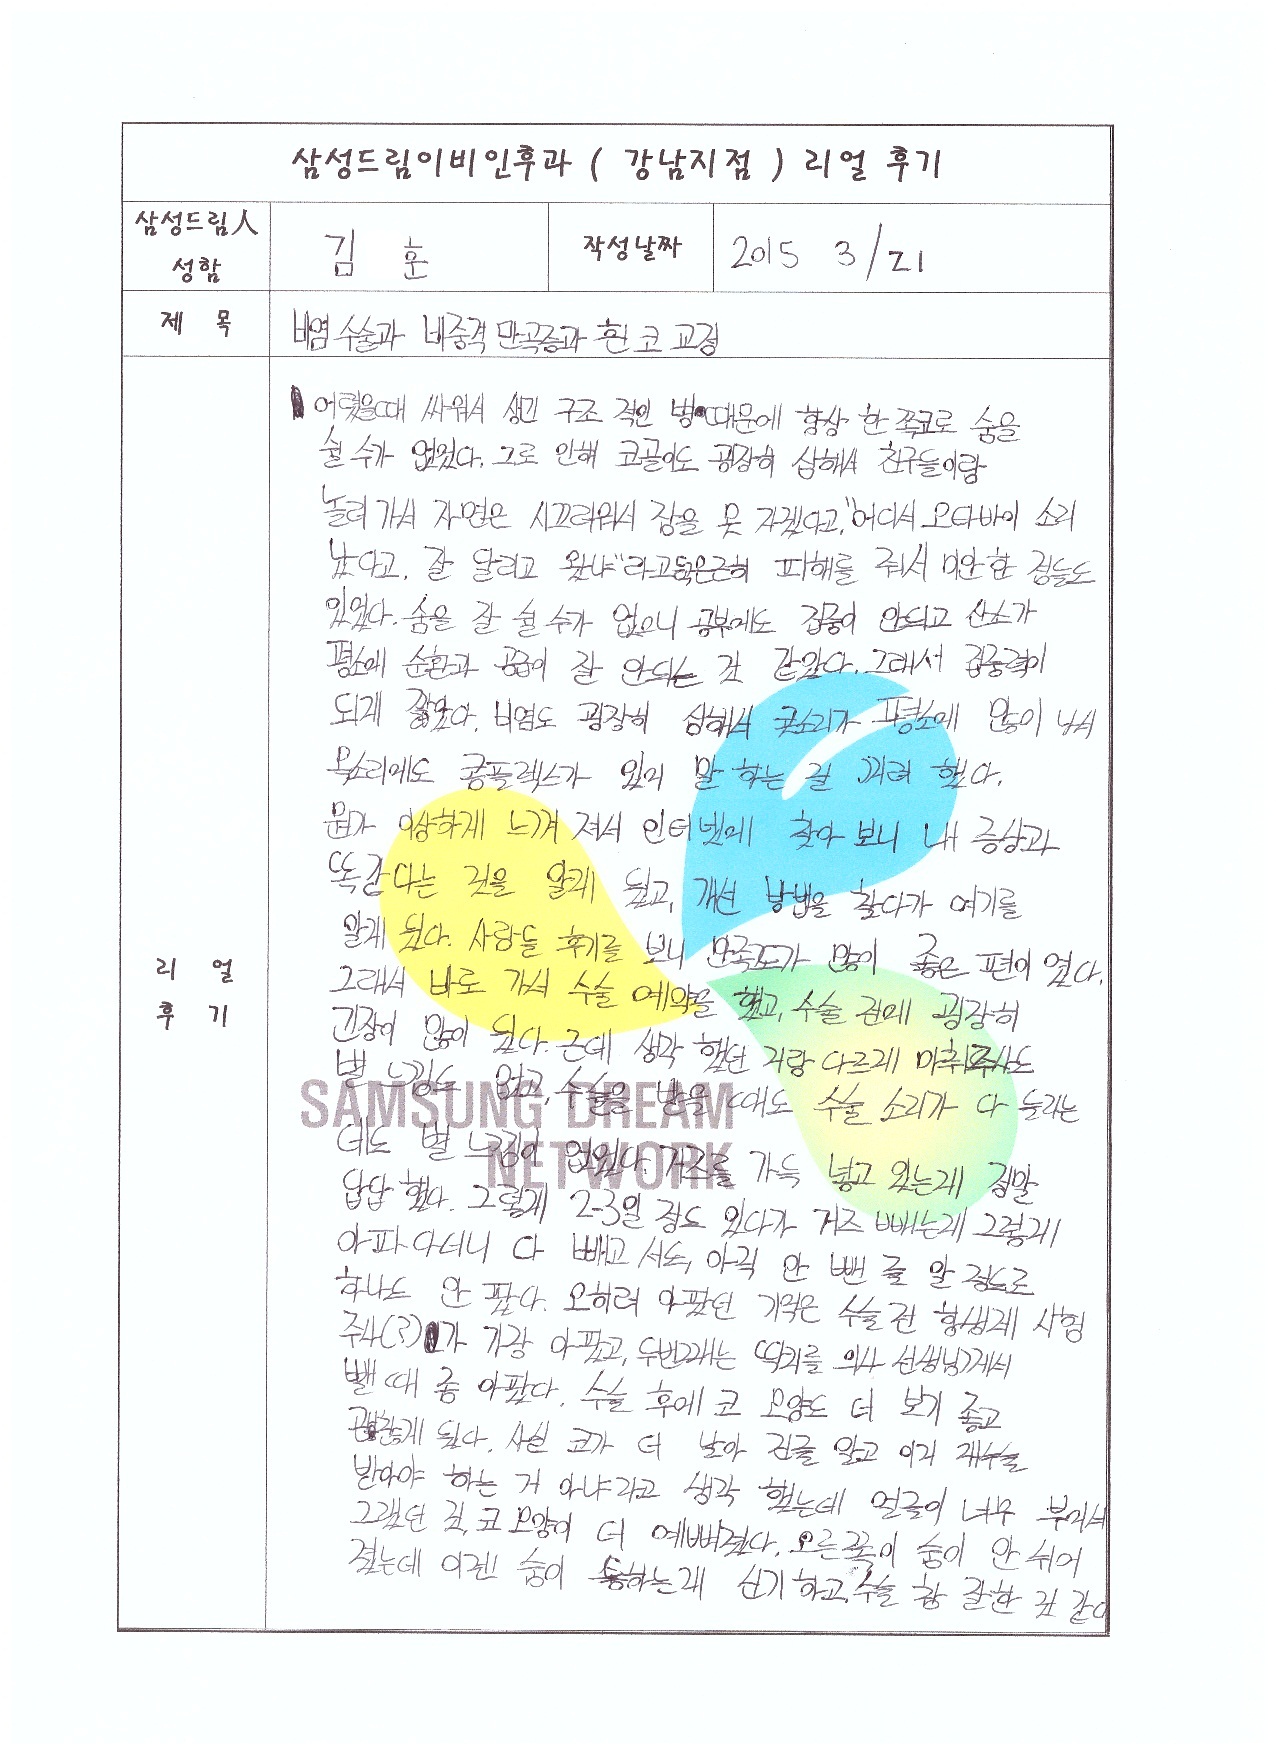 삼성드림이비인후과 ( 강남지점 ) 리얼 후기
삼성드림人 성함
김 훈
작성날짜
2015 3/21
제 목
비염 수술과 비중격 만곡증과 휜 코 교정
리 얼 후 기
어렸을때 싸워서 생긴 구조 적인 병때문에 항상 한 쪽코로 숨을
쉴 수가 없었다. 그로 인해 코골이도 굉장히 심해서 친구들이랑
놀러 가서 자면은 시끄러워서 잠을 못 자겠다고, "어디서 오타바이 소리
났다고, 잘 달리고 왔냐"라고 은근히 피해를 줘서 미안한 점들도
있었다. 숨을 잘 쉴 수가 없으니 공부에도 집중이 안되고 산소가
평소에 순환과 공급이 잘 안되는 것 같았다. 그래서 집중력이
되게 짧았다. 비염도 굉장히 심해서 콧소리가 평소에 많이 나서
목소리에도 콤플렉스가 있어 말 하는 걸 꺼려 했다.
뭔가 이상하게 느껴 져서 인터넷에 찾아 보니 내 증상과
똑같 다는 것을 알게 됬고, 개선 방법을 찾다가 여기를
알게 됬다. 사람들 후기를 보니 만족도가 많이 좋은 편이 였다.
그래서 바로 가서 수술 예약을 했고, 수술 전에 굉장히
긴장이 많이 됬다. 근데 생각 했던 거랑 다르게 마취주사도
별 느낌도 없고, 수술을 받을 때도 수술 소리가 다 들리는
데도 별 느낌이 없었다. 거즈를 가득 넣고 있는게 정말
답답 했다. 그렇게 2-3일 정도 있다가 거즈 빼는게 그렇게
아파 다더니 다 빼고 서도, 아직 안 뺀 줄 알 정도로
하나도 안 팠다. 오히려 아팠던 기억은 수술 전 항생제 시험
주사(?)가 가장 아팠고, 두번째는 딱지를 의사 선생님께서
뺄 때 좀 아팠다. 수술 후에 코 모양도 더 보기 좋고
괜찮게 됬다. 사실 코가 더 낮아 진줄 알고 이거 재수술
받아야 하는 거 아냐라고 생각 했는데 얼굴이 너무 부어서
그랬던 것, 코 모양이 더 예뻐졌다. 오른쪽이 숨이 안 쉬어
졌는데 이젠 숨이 통하는게 신기하고, 수술 참 잘한 것 같다
SAMSUNG DREAM
NETWORK